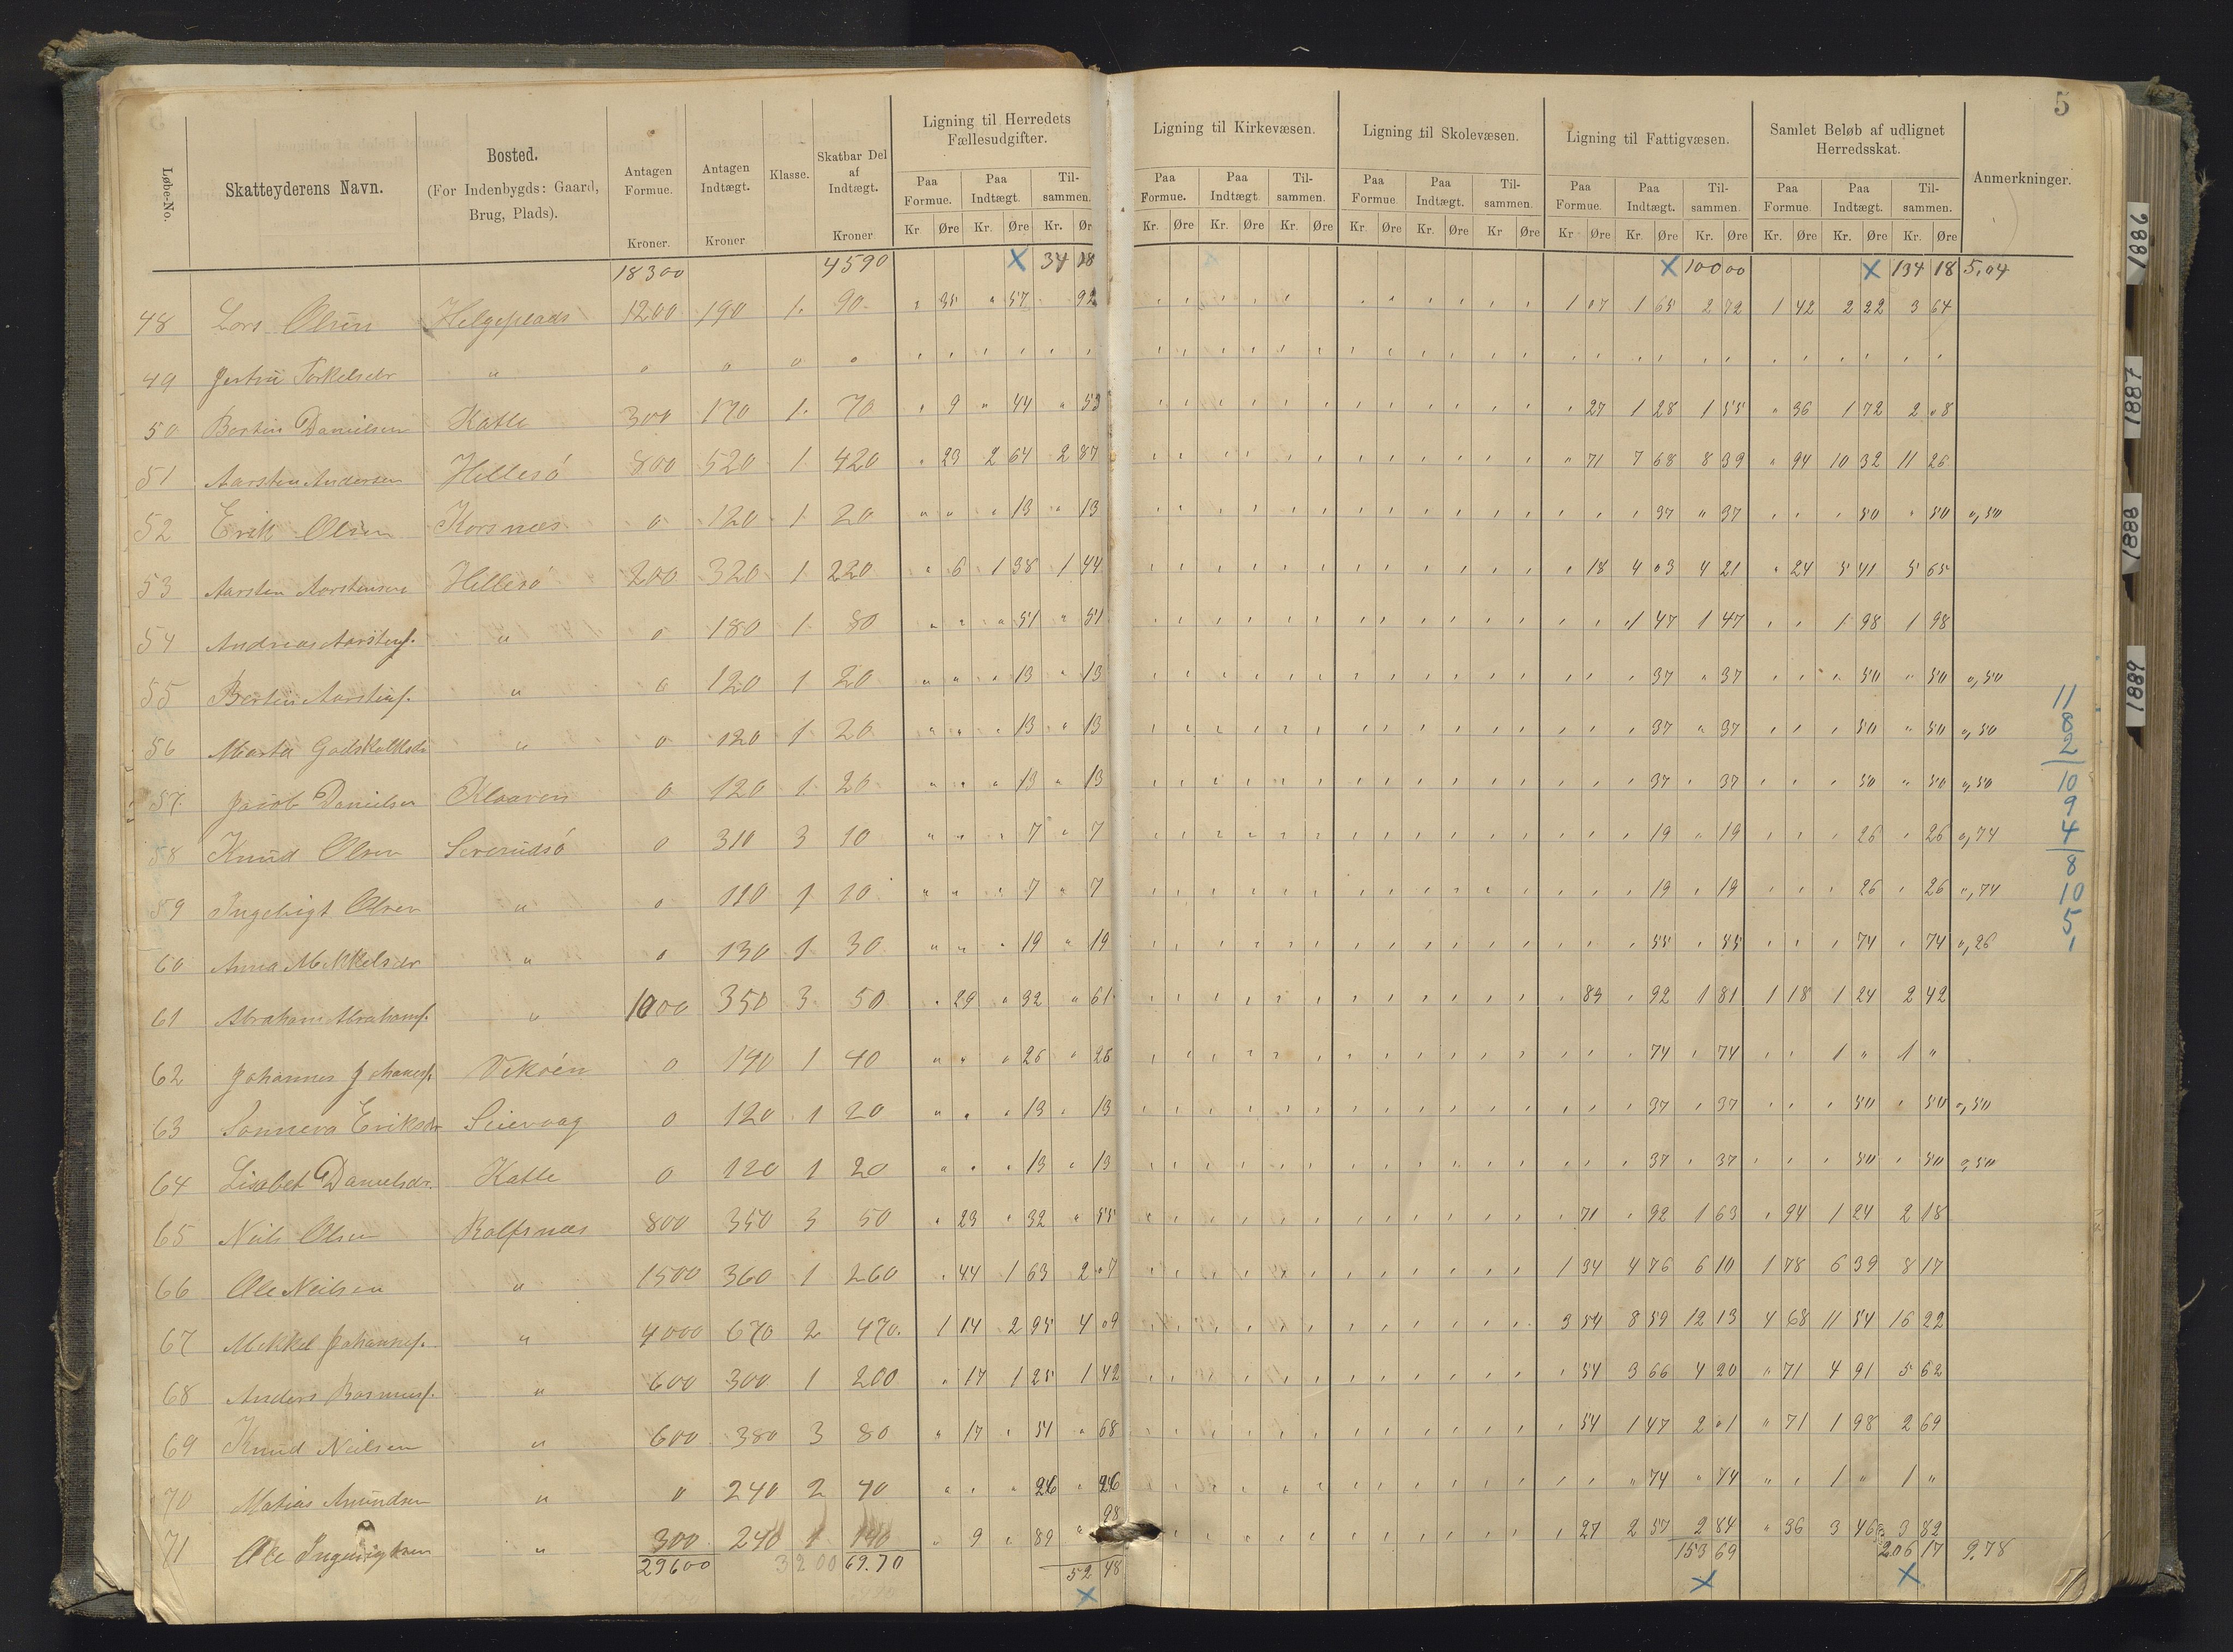 5
Løbe-No. Skatteyderens Navn. Bosted. (For Indenbygds: Gaard, Brug, Plads). Antagen Formue. Kroner. Antagen Indtægt. Kroner Klasse. Skatbar Del af Indtægt. Kroner Ligning til Herredets Fællesudgifter. Ligning til Kirkevæsen. Ligning til Skolevæsen. Ligning til Fattigvæsen. Samlet Beløb af udlignet Herredsskat. Anmerkninger.
Paa Formue. Paa Indtægt. Til-sammen. Paa Formue. Paa Indtægt Til-sammen. Paa Formue. Paa Indtægt. Til-sammen. Paa Formue. Paa Indtægt. Til-sammen. Paa Formue. Paa Indtægt. Til-sammen.
Kr. Øre Kr. Øre Kr. Øre Kr. Øre Kr. Øre Kr. Øre Kr. Øre Kr. Øre Kr Øre Kr Øre Kr. Øre Kr. Øre Kr. Øre Kr. Øre Kr. Øre
18300 4590 X 34 18 X 100 00 X 134 18 5,04
48 Lars Olsen Helgeplads 1200 190 1. 90 " 35 " 57 92 1 07 1 65 2 72 1 42 2 22 3 64
49 Jertru Torkelsdr " 0 0 0 0
50 Bertin Danielsen Katle 300 170 1. 70 " 9 " 44 " 53 " 27 1 28 1 55 " 36 1 72 2 08
51 Aarsten Andersen Hillesö 800 520 1 420 " 23 2 64 2 87 " 71 7 68 8 39 " 94 10 32 11 26
52 Erik Olsen Korsnæs 0 120 1 20 " " " 13 " 13 37 " 37 50 " 50 0,50
53 Aarsten Aarstensen Hillesö 200 320 1 220 " 6 1 38 1 44 " 18 4 03 4 21 " 24 5 41 5 65
54 Andreas Aarstens. " 0 180 1 80 " " " 51 " 51 1 47 1 47 1 98 1 98
55 Bertin Aarstens. " 0 120 1 20 " " " 13 " 13 37 " 37 50 " 50 0,50
56 Marta Godskalksdr " 0 120 1 20 " " " 13 " 13 37 " 37 50 " 50 0,50
57. Jacob Danielsen Klaaven 0 120 1 20 " " " 13 " 13 37 " 37 50 " 50 0,50
58 Knud Olsen Severudsö 0 310 3 10 " " " 7 " 7 19 " 19 26 " 26 0,74
59 Ingebrigt Olsen " 0 110 1 10 " " " 7 " 7 19 " 19 26 " 26 0,74
60 Anna Mikkelsdr " 0 130 1 30 " " " 19 " 19 55 " 55 74 " 74 0,26
61 Abraham Abrahams. " 1000 350 3 50 " 29 " 32 " 61 " 89 " 92 1 81 1 18 1 24 2 42
62 Johannes Johannes. Vikøen 0 140 1 40 " " " 26 " 26 74 " 74 1 " 1 "
63 Sonneva Eriksdr Seievaag 0 120 1 20 " " " 13 " 13 37 " 37 50 " 50 0,50
64 Lisabet Danielsdr. Katle 0 120 1 20 " " " 13 " 13 37 " 37 50 " 50 0,50
65 Neils Olsen Rolfsnæs 800 350 3 50 " 23 " 32 " 55 " 71 " 92 1 63 " 94 1 24 2 18
66 Ole Neilsen " 1500 360 1 260 " 44 1 63 2 07 1 34 4 76 6 10 1 78 6 39 8 17
67 Mikkel Johannes. " 4000 670 2 470. 1 14 2 95 4 09 3 54 8 59 12 13 4 68 11 54 16 22
68 Anders Rasmus. " 600 300 1 200 " 17 1 25 1 42 " 54 3 66 4 20 " 71 4 91 5 62
69 Knud Neilsen " 600 380 3 80 " 17 " 51 " 68 " 54 1 47 2 01 " 71 1 98 2 69
70 Matias Amundsen " 0 240 2 40 " " " 26 " 26 " 74 " 74 " " 1 " 1 "
71 Ole Ingebrigtsen " 300 240 1 140 " 9 " 89 " 98 " 27 2 57 2 84 " 36 3 46 3 82
29600 3200 69.70 52 48 153 69 206 17 9.78
X X X
11
8
2
10
9
4
8
10
5
1
1886
1887
1888
1889